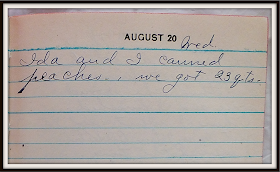 AUGUST 20 Wed.
Ida and I canned
peaches., we got 23 qts.